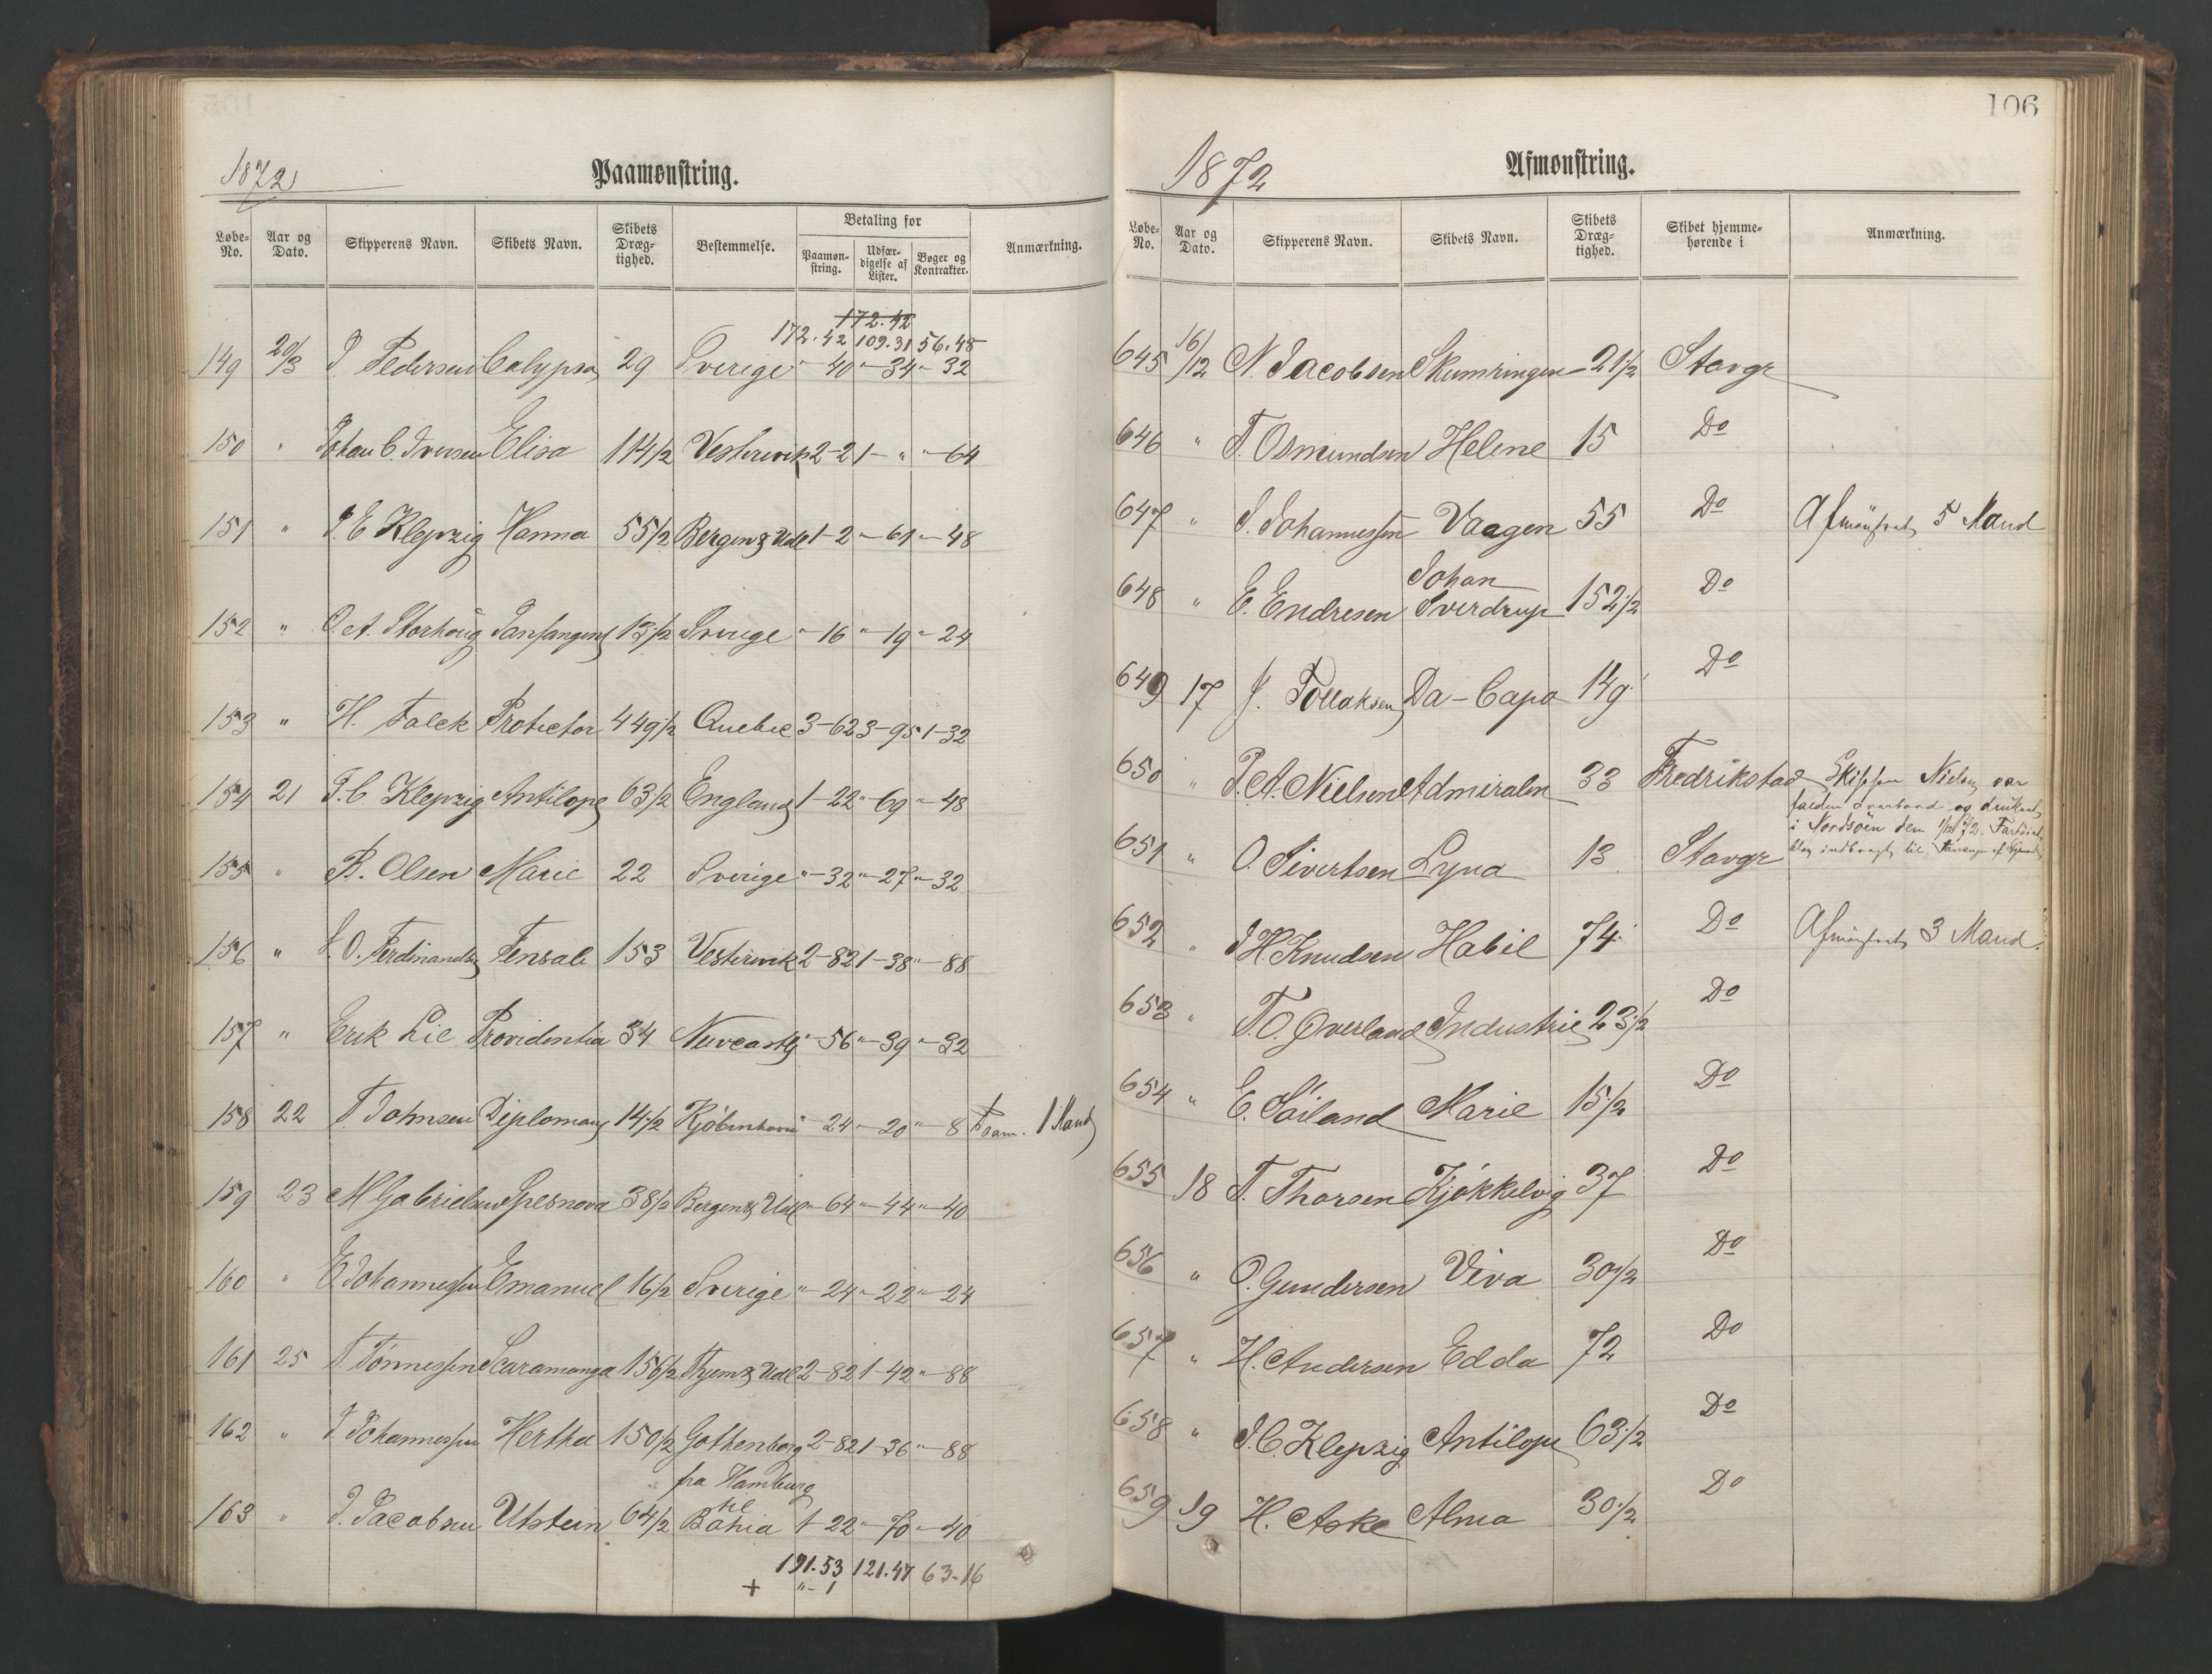 1872 Paamønstring.
Løbe-No. Aar og Dato. Skipperens Navn. Skibets Navn. Skibets Dræg-tighed. Bestemmelse. Betaling for Paamøn-string. Udfær-digelse af Lister. Bøger og Kontrakter. Anmærkning.
172.42
172.42 109.31 56.48
149 20/3 Pedersen Calypso 29 Sverige " - 40 " - 34 " - 32
150 " Johan C. Iversen Elisa 114 1/2 Vestervik 2-2 1- " " - 64
151 " J. E. Klepzig Hanna 55 1/2 Bergen & Udl 1-2 " - 61 " - 48
152 " O. A. Storhoug 13 1/2 Sverige " - 16 " - 19 " - 24
153 " H. Falck Protector 449 1/2 Quebec 3-62 3-95 1-32
154 21 J. C. Klepzig Antilope 63 1/2 England 1-22 " - 69 " - 48
155 " B. Olsen Marie 22 Sverige " - 32 " - 27 " - 32
156 " O. Ferdinandsen Fensale 153 Vestervik 2-82 1-38 " - 88
157 " Erik Lie Providentia 34 Newcastle " - 56 " - 39 " - 32
158 22 T. Johnsen Diploman 14 1/2 Kjøbenhavn " - 24 " - 20 " - 8 1 Mand
159 23 M Gabrielsen Spesnova 38 1/2 Bergen & Udl " - 64 " - 44 " - 40
160 " E Johannessen Emanuel 16 1/2 Sverige " - 24 " - 22 " - 24
161 25 T Tönnessen Scaramanga 156 1/2 & Udl 2-82 1-42 " - 88
162 " J Johannessen Hertha 150 1/2 Gothenborg 2-82 1-36 " - 88
fra Hamburg
til
163 " J. Jacobsen Utstein 64 1/2 Bahia 1-22 " - 70 " - 40
191.53 121.47 63.16
+ " - 1
106
1872 Afmønstring.
Løbe-No. Aar og Dato. Skipperens Navn. Skibets Navn. Skibets Dræg-tighed. Skibet hjemme-hørende i Anmærkning.
645 16/12 N. Jacobsen Skumringen 21 1/2 Stavgr
646 " T. Osmundsen Helene 15 Do
647 " S. Johannessen Vaagen 55 Do Afmönstret 5 Mand
Johan
648 " E. Endresen Sverdrup 152 1/2 Do
649 17 J. Tollaksen Da-Capo 149 Do
650 " P. A. Nielsen Admiralen 33 Fredrikstad Skipper Nielsen var
falden overbord og druknet
i Nordsøen den 1/12 72. Fartöiet
651 " O. Sivertsen Lyna 13 Stavgr blev indbragt til Stavanger af
652 " J H. Knudsen Habil 74 Do Afmönstret 3 Mand.
653 " T. O. Qverland Industrie 23 1/2 Do
654 " E. Söiland Marie 15 1/2 Do
655 18 T. Thorsen Kjökkelvig 37 Do
656 " O. Gundersen Viva 30 1/2 Do
657 " H. Andersen Edda 72 Do
658 " J. C. Klepzig Antilope 63 1/2 Do
659 19 H. Aske Alma 30 1/2 Do